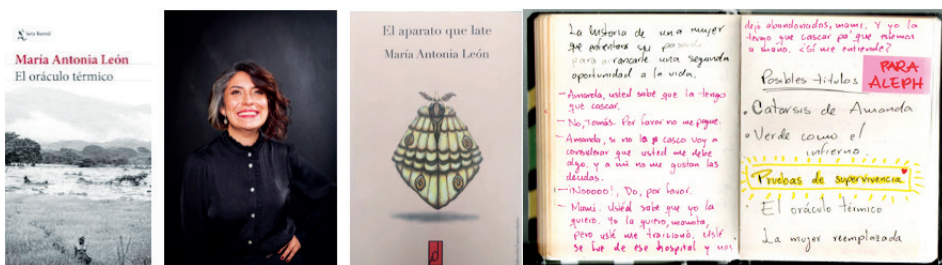 Seix Barral
María Antonia León
El oráculo térmico
El aparato que late
María Antonia León
La historia de una mujer
que enfrentará su pasado
para arrancarle una segunda
oportunidad a la vida.
- Amanda, usted sabe que la tengo
que cascar.
- No, Tomás. Por favor no me pegue.
- Amanda, si no la casco voy a
considerar que usted me debe
algo, y a mí no me gustan las
deudas.
- ¡Nooooo!, Do, por favor.
- Mami. Usted sabe que yo la
quiero. Yo la quiero, mamita,
pero usté me traicionó. Usté
se fue de ese hospital y nos
dejó abandonados, mami. Y yo la
tengo que cascar pa' que estemos
a mano. ¿Sí me entiende?
PARA
ALEPH
Posibles títulos
• Catarsis de Amanda
• Verde como el
infierno.
Pruebas de supervivencia
• El oráculo térmico
La mujer reemplazada